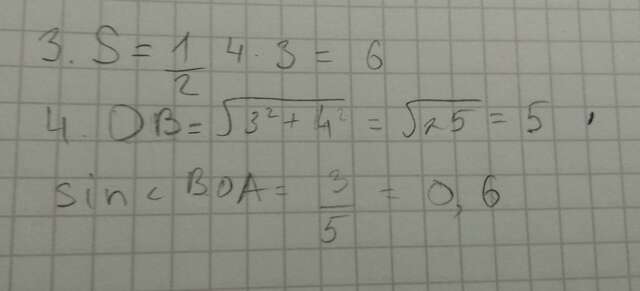 3. S = 1/2 4 · 3 = 6
4. OB = √(3² + 4²) = √25 = 5 ,
sin < BOA = 3/5 = 0,6